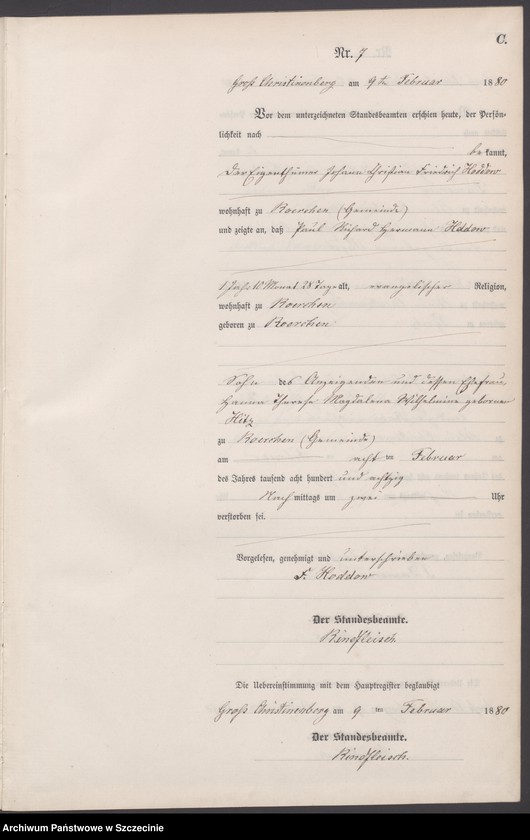 C.
Nr. 7
Groß Christinenberg am 9ten Februar 1880
Vor dem unterzeichneten Standesbeamten erschien heute, der Persön-
lichkeit nach
bekannt,
der Eigenthümer Johann Christian Friedrich Hoddow
wohnhaft zu Roerchen (Gemeinde)
und zeigte an, daß Paul Richard Hermann Hoddow
1 Jahr 10 Monat 28 Tage alt, evangelischer Religion,
wohnhaft zu Roerchen
geboren zu Roerchen
Sohn des Anzeigenden und dessen Ehefrau
Hanna Therese Magdalena Wilhelmine geborne
Hitz
zu Roerchen (Gemeinde)
am acht ten Februar
des Jahres tausend acht hundert und achtzig
Nachmittags um zwei Uhr
verstorben sei.
Vorgelesen, genehmigt und unterschrieben
F. Hoddow
Der Standesbeamte.
Rindfleisch
Die Uebereinstimmung mit dem Hauptregister beglaubigt
Groß Christinenberg am 9 ten Februar 1880
Der Standesbeamte.
Rindfleisch.
Archiwum Państwowe w Szczecinie